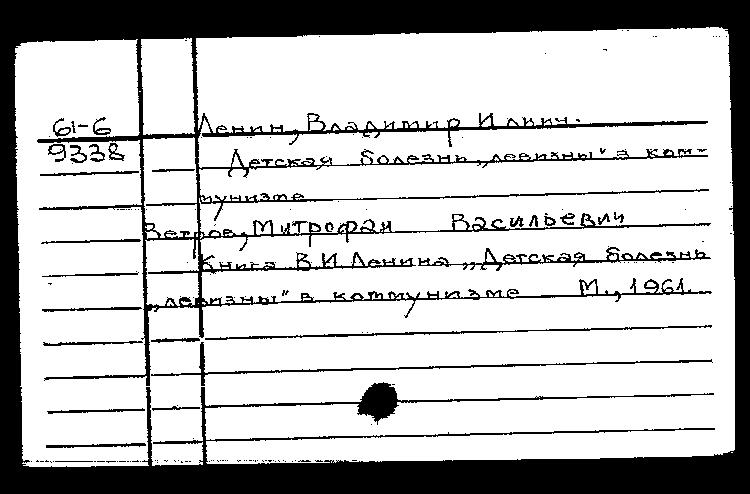 61-6 Ленин, Владимир Ильич.
9338 Детская болезнь „левизны" в ком-
мунизме
Ветров, Митрофан Васильевич
Книга В.И. Ленина „Детская болезнь
„левизны" в коммунизме М., 1961.